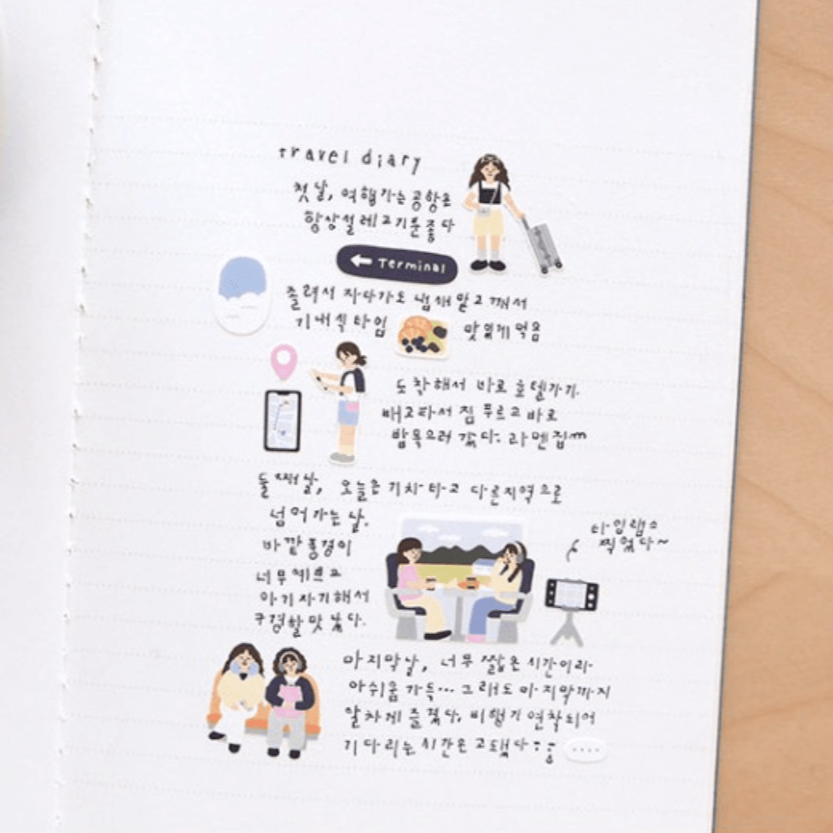 travel diary
첫날, 여행가는 공항은
항상 설레고 기분 좋다
← Terminal
졸려서 자다가도 냄새 맡고 깨서
기내식 타임 맛있게 먹음
도착해서 바로 호텔가기.
배고파서 짐 푸르고 바로
밥 먹으러 갔다. 라멘집
둘째날, 오늘은 기차타고 다른지역으로
넘어가는 날.
바깥 풍경이
너무 예쁘고
아기자기해서
구경할 맛 났다.
타임랩스
찍었다~
마지막날, 너무 짧은 시간이라
아쉬움 가득... 그래도 마지막까지
알차게 즐겼다. 비행기 연착되어
기다리는 시간은 고됐다
....